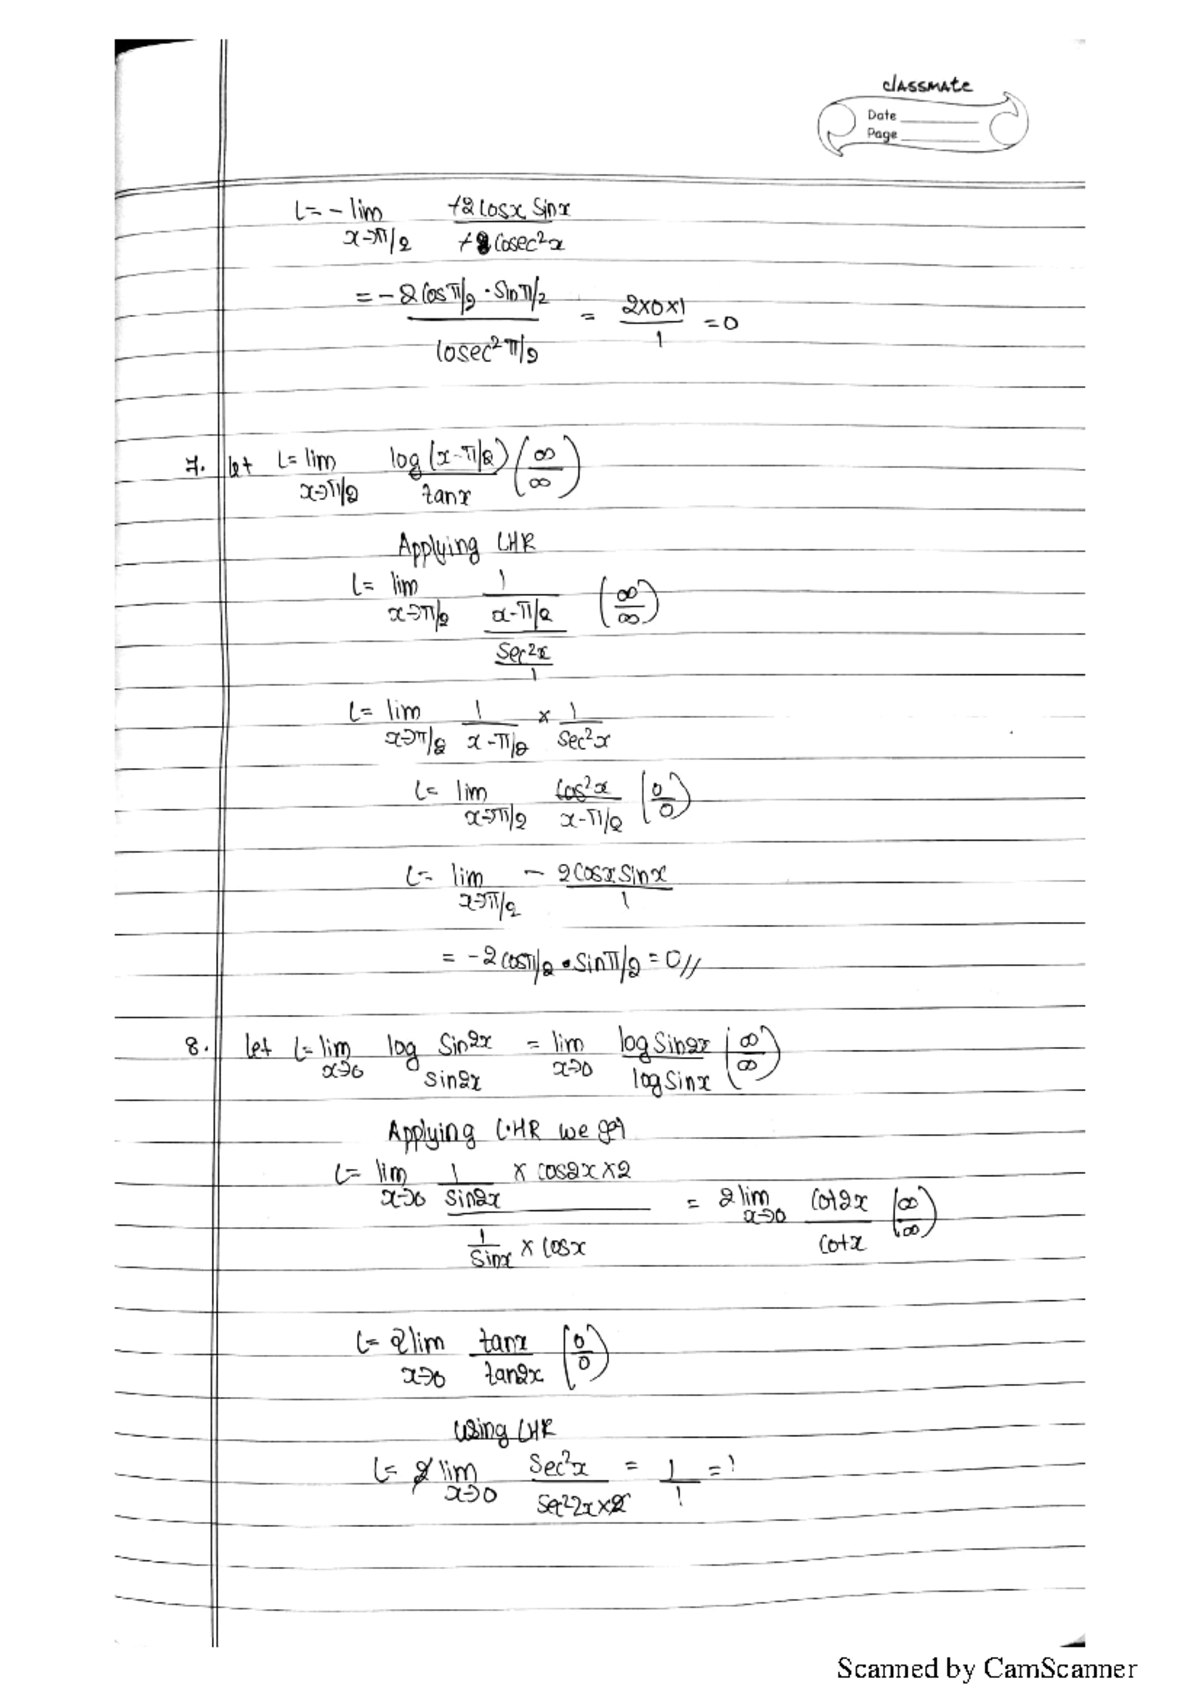 classmate
Date
Page
L = - lim x→π/2 +2 cosx sinx / +2 cosec²x
= - 2 cos π/2 · sin π/2 / cosec² π/2 = 2×0×1 / 1 = 0
7. let L = lim x→π/2 log (x-π/2) / tanx (∞/∞)
Applying LHR
L = lim x→π/2 1 / x-π/2 / sec²x / 1 (∞/∞)
L = lim x→π/2 1 / x-π/2 × 1 / sec²x
L = lim x→π/2 cos²x / x-π/2 (0/0)
L = lim x→π/2 - 2 cosx sinx / 1
= -2 cosπ/2 · sinπ/2 = 0//
8. let L = lim x→0 log sin2x sin2x = lim x→0 log sin2x / log sinx (∞/∞)
Applying L·HR we get
L = lim x→0 1 / sin2x × cos2x × 2 / 1 / sinx × cosx = 2 lim x→0 cot2x / cotx (∞/∞)
L = 2 lim x→0 tanx / tan2x (0/0)
using LHR
L = 2 lim x→0 sec²x / sec²2x×2 = 1 / 1 = 1
Scanned by CamScanner